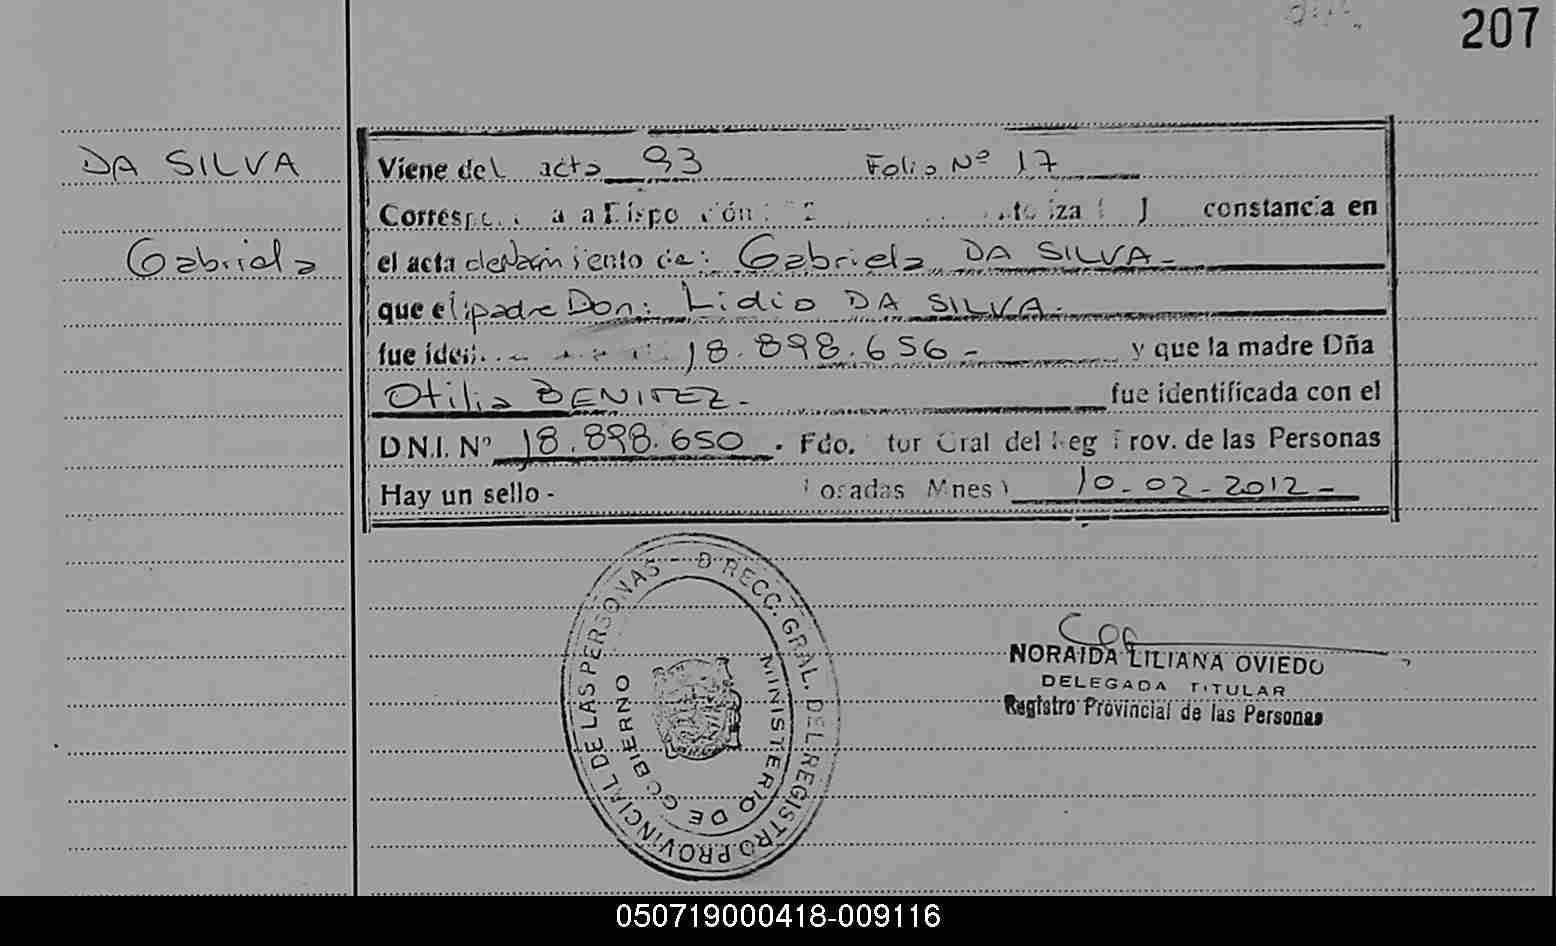 207
DA SILVA
Gabriela
Viene del acta 93 Folio Nº 17
constancia en
el acta de Nacimiento de: Gabriela DA SILVA-
que el padre Don: Lidio DA SILVA-
fue 18.898.656- y que la madre Dña
Otilia BENITEZ- fue identificada con el
D.N.I. Nº 18.898.650. Fdo. Gral del Reg Prov. de las Personas
Hay un sello - Posadas Mnes) 10-02-2012-
DIRECC. GRAL. DEL REGISTRO PROVINCIAL DE LAS PERSONAS
MINISTERIO DE GOBIERNO
NORAIDA LILIANA OVIEDO
DELEGADA TITULAR
Registro Provincial de las Personas
050719000418-009116